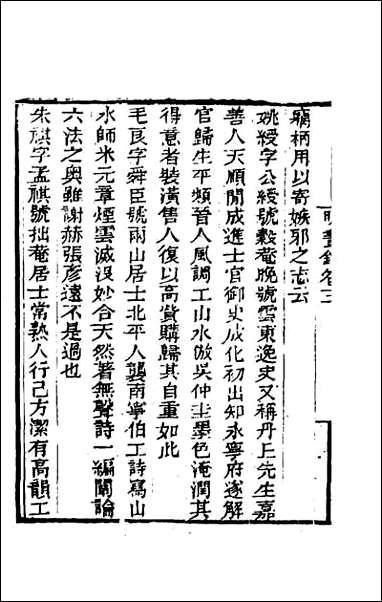 明畫錄卷三
柄用以寄嫉邪之志云
姚綬字公綬號穀菴晚號雲東逸史又稱丹丘先生嘉
善人天順閒成進士官御史成化初出知永寧府遂解
官歸生平頗晉人風調工山水倣吳仲圭墨色淹潤其
得意者裝潢售人復以高貲購歸其自重如此
毛良字舜臣號雨山居士北平人襲南寧伯工詩寫山
水師米元章煙雲滅沒妙合天然著無聲詩一編闡論
六法之奧雖謝赫張彥遠不是過也
朱祺字孟祺號拙菴居士常熟人行己方潔有高韻工